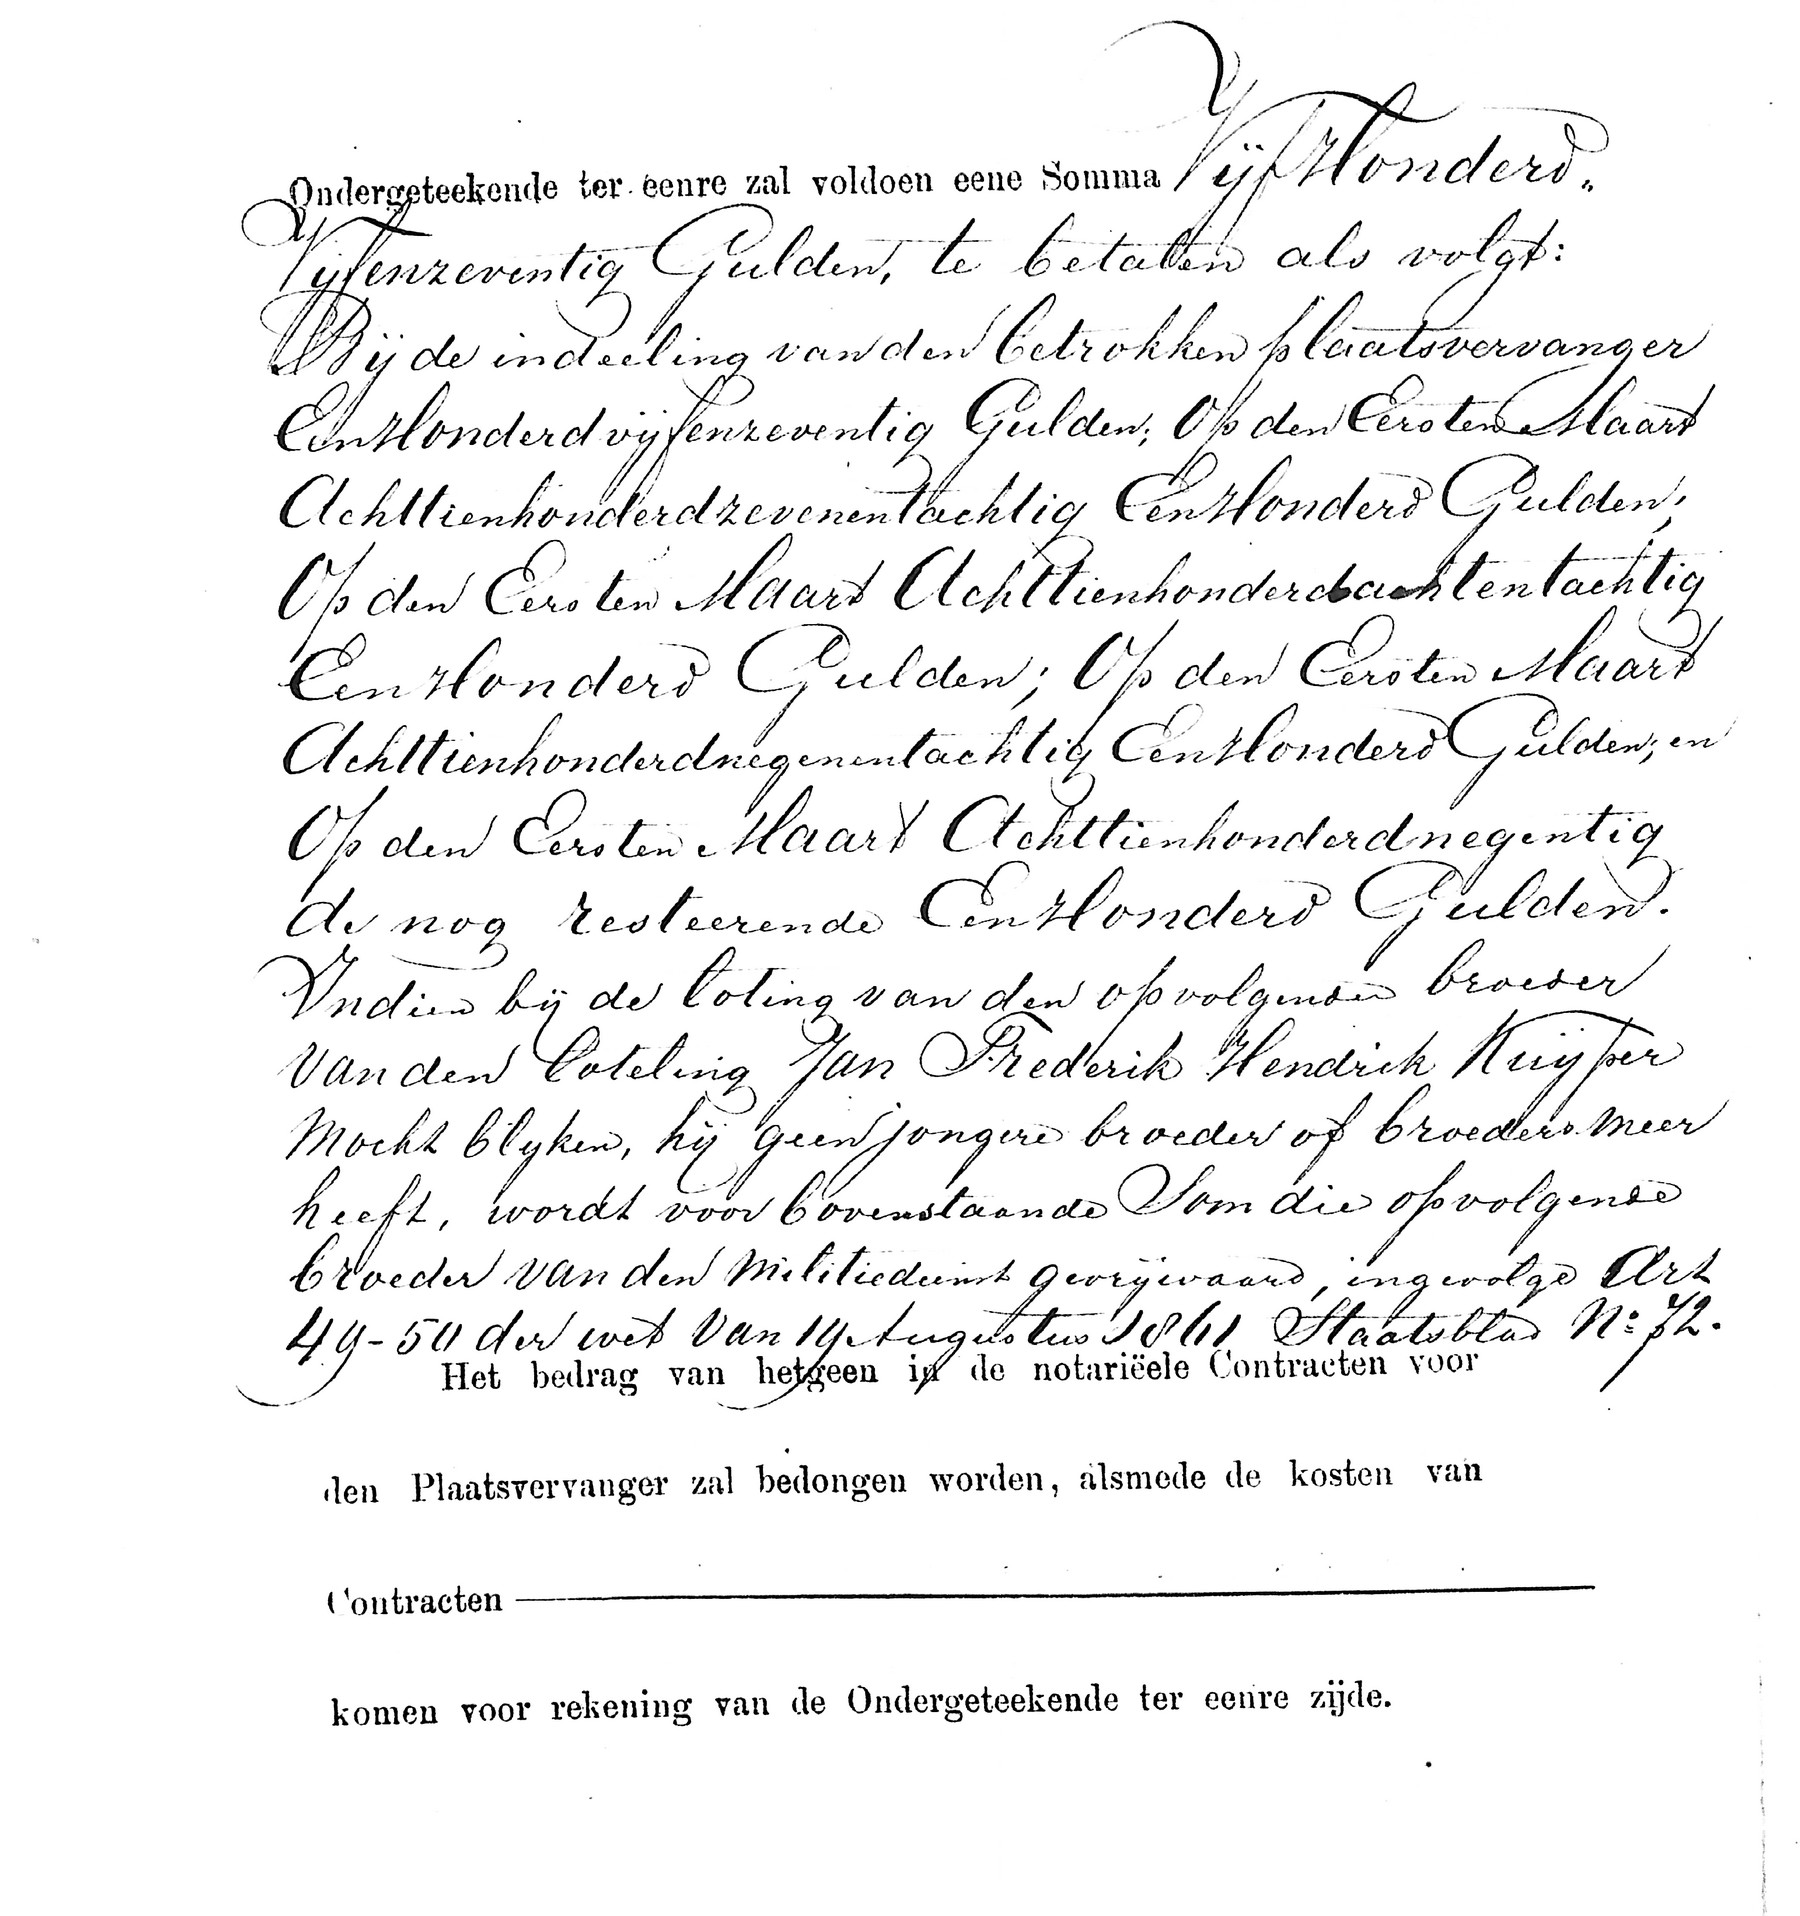 Ondergeteekende ter eenre zal voldoen eene Somma VijfHonderd„
Vijfenzeventig Gulden, te betalen als volgt:
Bij de indeeling van den betrokken plaatsvervanger
EenHonderdvijfenzeventig Gulden; Op den Eersten Maart
Achttienhonderdzevenentachtig EenHonderd Gulden;
Op den Eersten Maart Achttienhonderdachtentachtig
EenHonderd Gulden; Op den Eersten Maart
Achttienhonderdnegenentachtig EenHonderd Gulden; en
Op den Eersten Maart Achttienhonderdnegentig
de nog resteerende EenHonderd Gulden.
Indien bij de loting van den opvolgenden broeder
van den loteling Jan Frederik Hendrik Kuijper
mocht blyken, hij geen jongere broeder of broeders meer
heeft, wordt voor bovenstaande Som die opvolgende
broeder van den Militiedienst gevrijwaard, ingevolge Art
49-50 der wet van 19 Augustus 1861 Staatsblad No: 72.
Het bedrag van hetgeen in de notariëele Contracten voor
den Plaatsvervanger zal bedongen worden, alsmede de kosten van
Contracten
komen voor rekening van de Ondergeteekende ter eenre zijde.